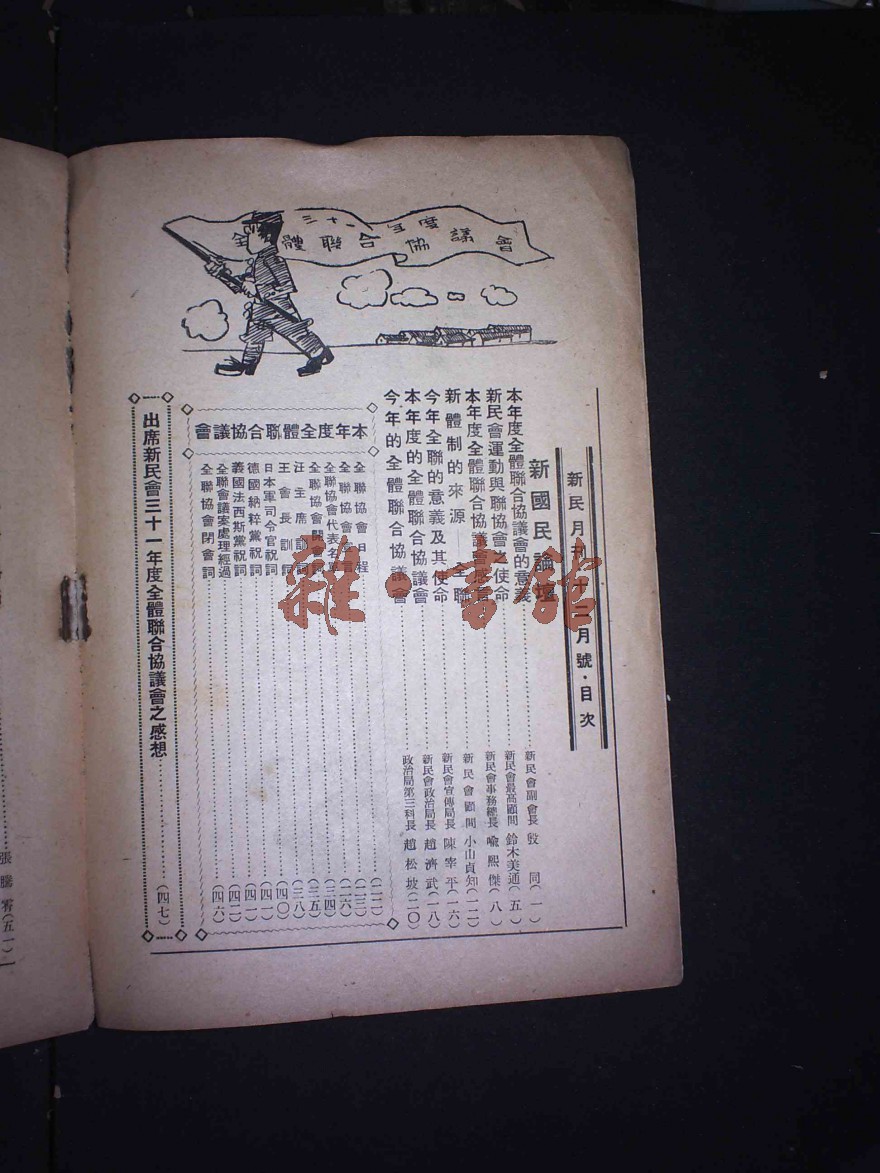 三十一年度
全體聯合協議會
新民月刊十二月號·目次
新國民論壇
本年度全體聯合協議會的意義 新民會副會長 殷同(一)
新民會運動與聯協會之使命 新民會最高顧問 鈴木美通(五)
本年度全體聯合協議會 新民會事務總長 喩熙傑(八)
新體制的來源——全聯 新民會顧問 小山貞知(一二)
今年全聯的意義及其使命 新民會宣傳局長 陳宰平(一六)
本年度的全體聯合協議會 新民會政治局長 趙濟武(一八)
今年的全體聯合協議會 政治局第三科長 趙松坡(二〇)
本年度全體聯合協議會
全聯協會日程(二二)
全聯協會宣言(二三)
全聯協會代表名單(二六)
全聯協會開會詞(三四)
汪主席訓詞(三五)
王會長訓詞(三八)
日本軍司令官祝詞(四〇)
德國納粹黨祝詞(四一)
義國法西斯黨祝詞(四一)
全聯會議案處理經過(四二)
全聯協會閉會詞(四六)
出席新民會三十一年度全體聯合協議會之感想(四七)
張騰霄(五一)
雜·書館